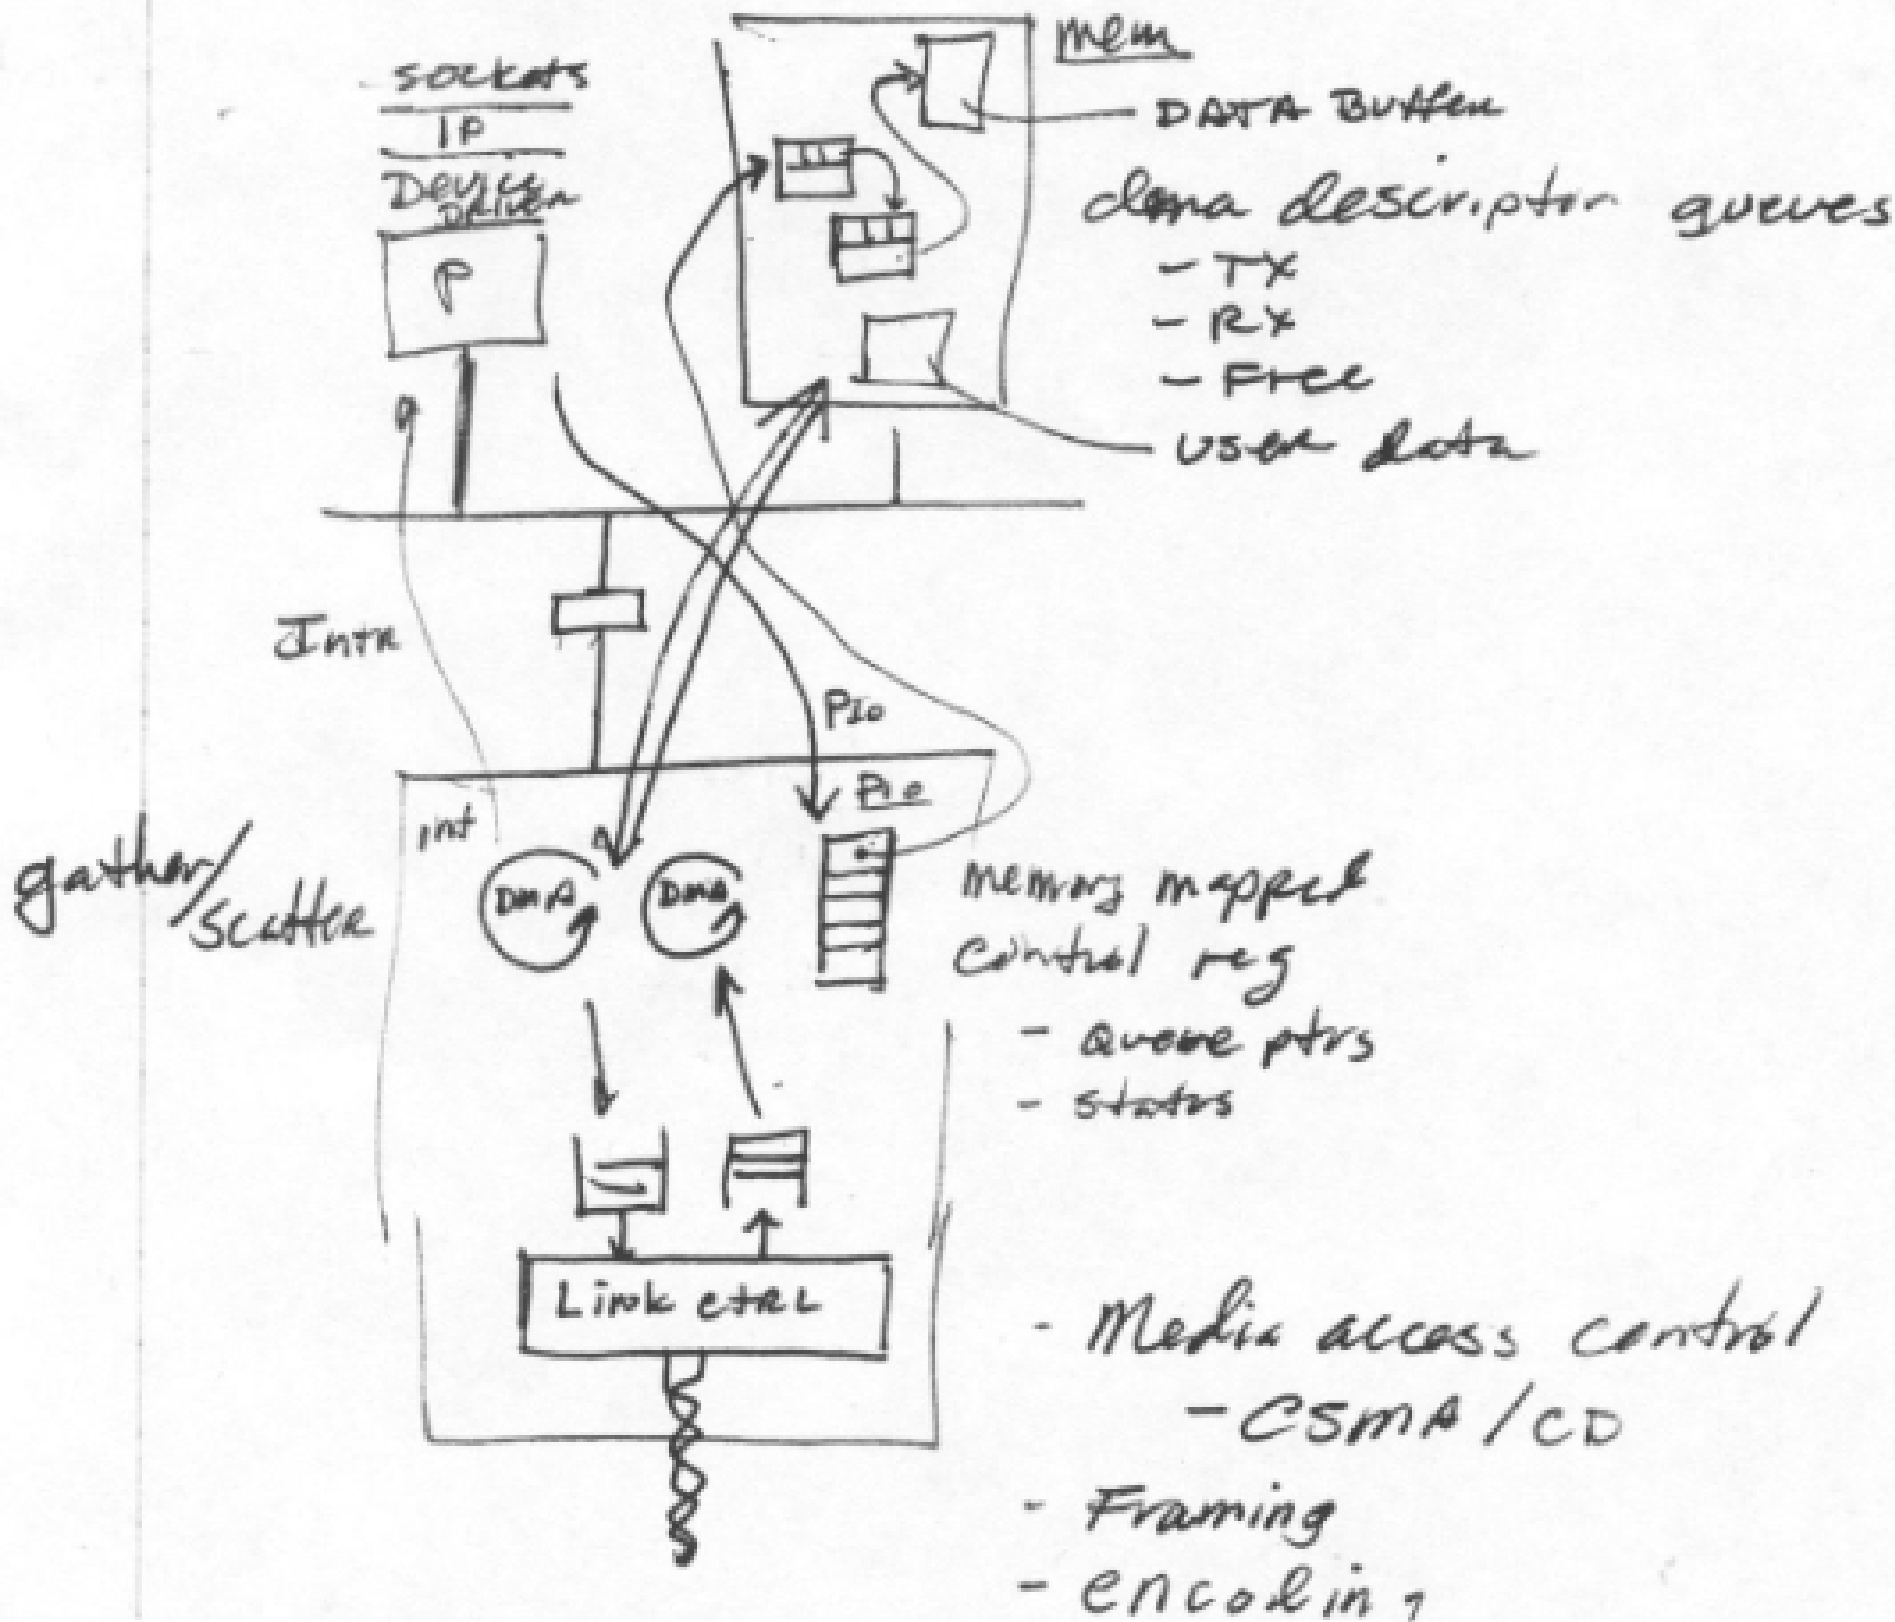 sockets
IP
Device
Driver
P
mem
DATA Buffer
dma descriptor queues
- TX
- RX
- Free
user data
Intr
PIO
PIO
int
gather/
scatter
DMA
DMA
memory mapped
control reg
- Queue ptrs
- status
Link ctrl
- Media access control
- CSMA/CD
- Framing
- encoding